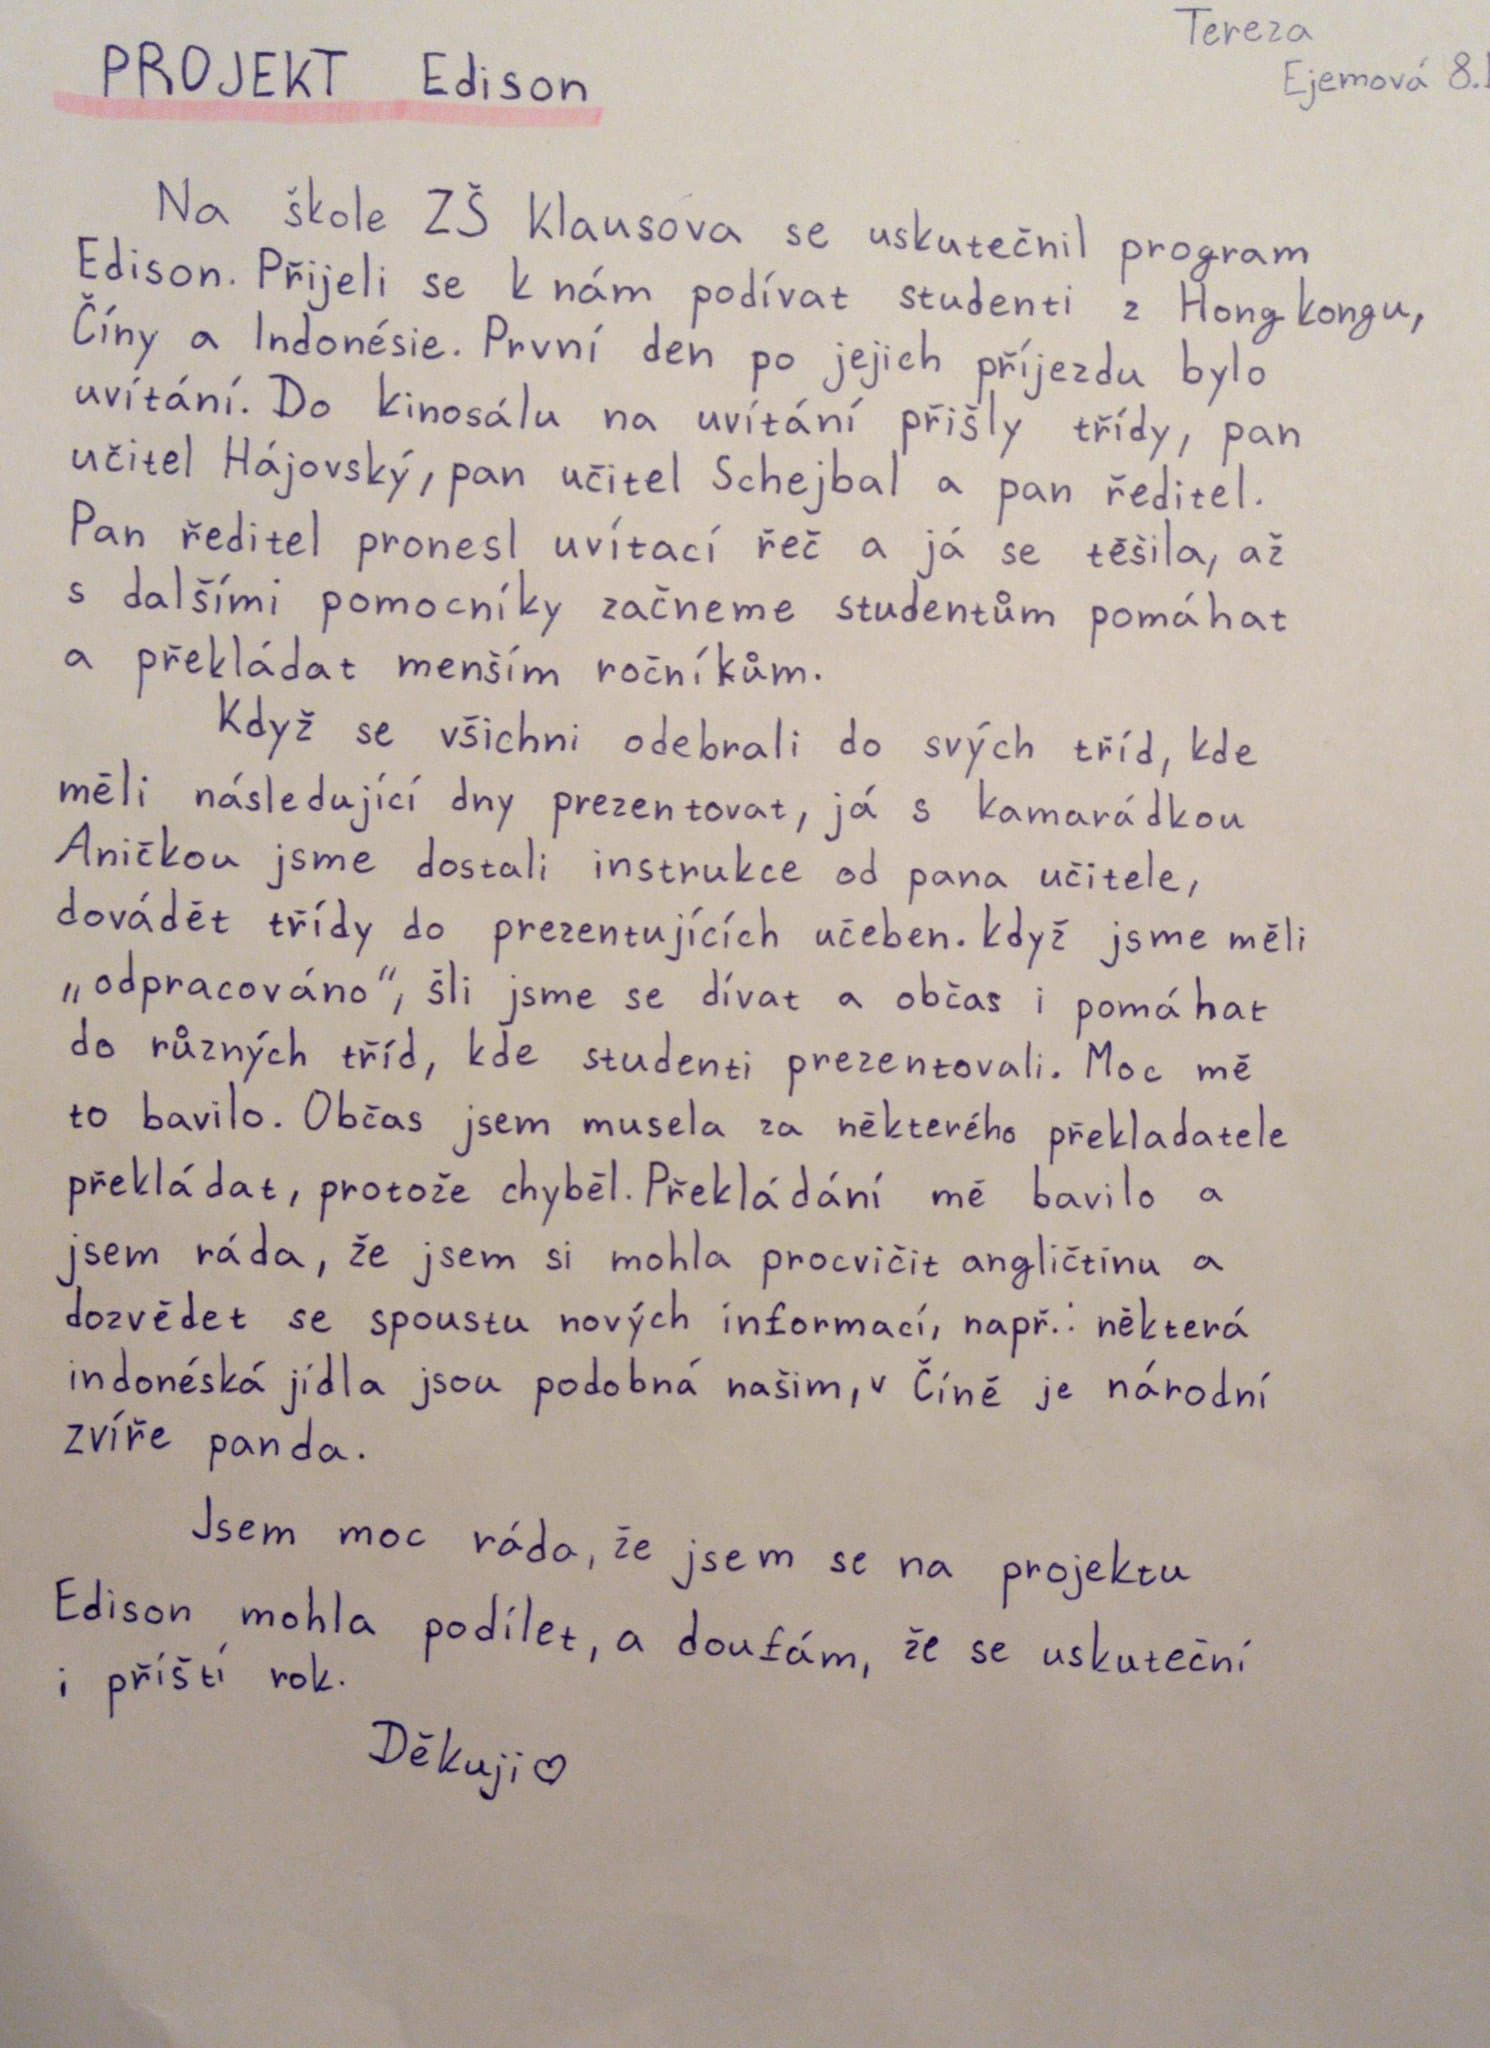 Tereza
PROJEKT Edison
Ejemová 8.
Na škole ZŠ Klausova se uskutečnil program
Edison. Přijeli se k nám podívat studenti z Hong kongu,
Číny a Indonésie. První den po jejich příjezdu bylo
uvítání. Do kinosálu na uvítání přišly třídy, pan
učitel Hájovský, pan učitel Schejbal a pan ředitel.
Pan ředitel pronesl uvítací řeč a já se těšila, až
s dalšími pomocníky začneme studentům pomáhat
a překládat menším ročníkům.
Když se všichni odebrali do svých tříd, kde
měli následující dny prezentovat, já s kamarádkou
Aničkou jsme dostali instrukce od pana učitele,
dovádět třídy do prezentujících učeben. Když jsme měli
„odpracováno“, šli jsme se dívat a občas i pomáhat
do různých tříd, kde studenti prezentovali. Moc mě
to bavilo. Občas jsem musela za některého překladatele
překládat, protože chyběl. Překládání mě bavilo a
jsem ráda, že jsem si mohla procvičit angličtinu a
dozvědet se spoustu nových informací, např.: některá
indonéská jídla jsou podobná našim, v Číně je národní
zvíře panda.
Jsem moc ráda, že jsem se na projektu
Edison mohla podílet, a doufám, že se uskuteční
i příští rok.
Děkuji♡